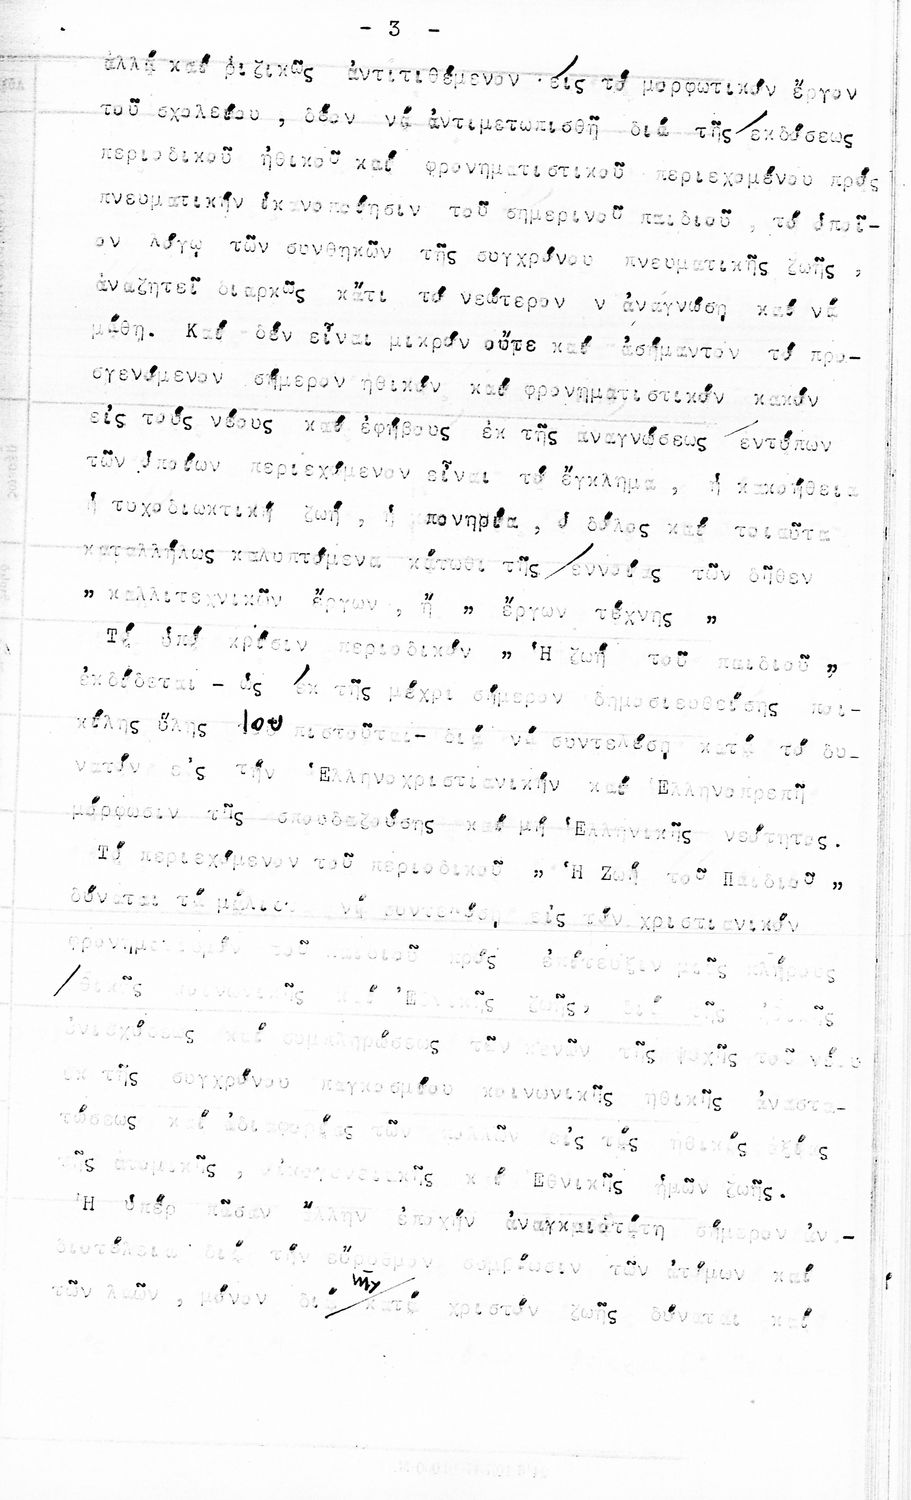 - 3 -
ἀλλά καί ριζικῶς ἀντιτιθέμενον εἰς τό μορφωτικόν ἔργον
τοῦ σχολείου , δέον νά ἀντιμετωπισθῆ διά τῆς ἐκδόσεως
περιοδικοῦ ἠθικοῦ καί φρονηματιστικοῦ περιεχομένου πρός
πνευματικήν ἱκανοποίησιν τοῦ σημερινοῦ παιδιοῦ , τό ὁποῖ-
ον λόγῳ τῶν συνθηκῶν τῆς συγχρόνου πνευματικῆς ζωῆς ,
ἀναζητεῖ διαρκῶς κἄτι τό νεώτερον ν ἀναγνώσῃ καί νά
μάθη. Καί δέν εἶναι μικρόν οὔτε καί ἀσήμαντον τό προ-
σγενόμενον σήμερον ηθικόν καί φρονηματιστικόν κακόν
εἰς τούς νέους καί ἐφήβους ἐκ τῆς αναγνώσεως ἐντύπων
τῶν ὁποίων περιεχόμενον εἶναι τό ἔγκλημα , ἡ κακοήθεια
ἡ τυχοδιωκτική ζωή , ἡ πονηρία , ὁ δόλος καί τοιαῦτα
καταλλήλως καλυπτόμενα κάτωθι τῆς ἐννοίας τῶν δῆθεν
„ καλλιτεχνικῶν ἔργων , ἤ „ ἔργων τέχνης „
Τό ὑπό κρίσιν περιοδικόν „ Ἡ ζωή τοῦ παιδιοῦ „
ἐκδίδεται - ὡς ἐκ τῆς μέχρι σήμερον δημοσιευθείσης ποι-
κίλης ὕλης του πιστοῦται- διά νά συντελέσῃ κατά τό δυ-
νατόν εἰς τήν Ἑλληνοχριστιανικήν καί Ἑλληνοπρεπῆ
μόρφωσιν τῆς σπουδαζούσης καί μή Ἑλληνικῆς νεότητος.
Τό περιεχόμενον τοῦ περιοδικοῦ „ Ἡ Ζωή τοῦ Παιδιοῦ „
δύναται τά μάλιστα νά συντελέσῃ εἰς τόν χριστιανικόν
φρονηματισμόν τοῦ παιδιοῦ πρός ἐπίτευξιν μιᾶς πλήρους
κοινωνικῆς καί ζωῆς, διά τῆς
καί συμπληρώσεως τῶν κενῶν τῆς ψυχῆς τοῦ νέου
εκ τῆς συγχρόνου παγκοσμίου κοινωνικῆς ηθικῆς ἀναστα-
τώσεως καί ἀδιαφορίας τῶν πολλῶν εἰς τάς ηθικάς ἀξίας
τῆς ἀτομικῆς , οἰκογενειακῆς καί Εθνικῆς ἡμῶν ζωῆς.
Ἡ ὑπέρ πᾶσαν ἄλλην ἐποχήν ἀναγκαιότάτη σήμερον
διά τήν συμβίωσιν τῶν ἀτόμων καί
τῶν λαῶν , μόνον διά κατά χριστόν ζωῆς δύναται καί